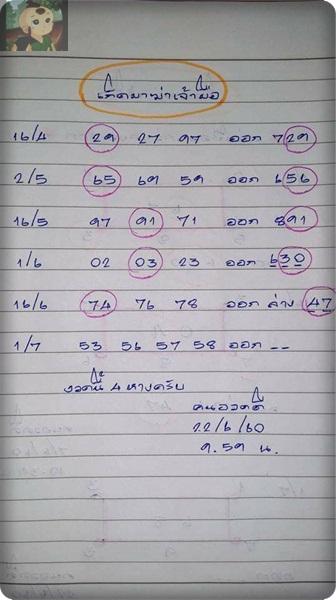 เกิดมาฆ่าเจ้ามือ
16/4 29 27 97 ออก 729
2/5 65 69 59 ออก 656
16/5 97 91 71 ออก 891
1/6 02 03 23 ออก 630
16/6 74 76 78 ออก ล่าง 47
1/7 53 56 57 58 ออก --
งวดนี้ 4 หางครับ
คนอวดดี
22/6/60
9.59 น.